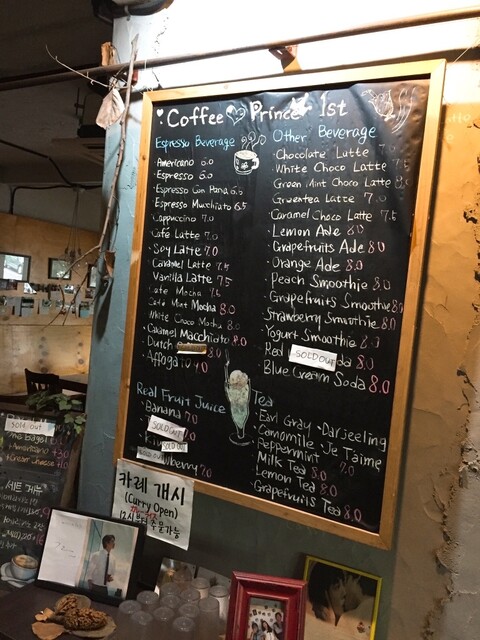 Coffee Prince 1st
Espresso Beverage
Americano 6.0
Espresso 6.0
Espresso Con Pana 6.5
Espresso Macchiato 6.5
Cappuccino 7.0
Café Latte 7.0
Soy Latte 7.0
Caramel Latte 7.5
Vanilla Latte 7.5
Cafe Mocha 7.5
Café Mint Mocha 8.0
White Choco Mocha 8.0
Caramel Macchiato 8.0
Dutch 8.0
Affogato 9.0
Other Beverage
Chocolate Latte 7.0
White Choco Latte
Green Mint Choco Latte 8.0
Greentea Latte 7.0
Caramel Choco Latte 7.5
Lemon Ade 8.0
Grapefruits Ade 8.0
Orange Ade 8.0
Peach Smoothie 8.0
Grapefruits Smoothie 8.0
Strawberry Smoothie 8.0
Yogurt Smoothie 8.0
Red SOLD OUT da 8.0
Blue Cream Soda 8.0
Real Fruit Juice
Banana 7.0
SOLD OUT
Ki
SOLD OUT wberry 7.0
Tea
Earl Gray · Darjeeling
Camomile · Je T'aime
Peppermint 7.0
Milk Tea 8.0
Lemon Tea 8.0
Grapefruits Tea 8.0
카레 개시
(Curry Open)
12시부터 주문가능
SOLD OUT
Bagel
Americano
Cream Cheese
세트 메뉴